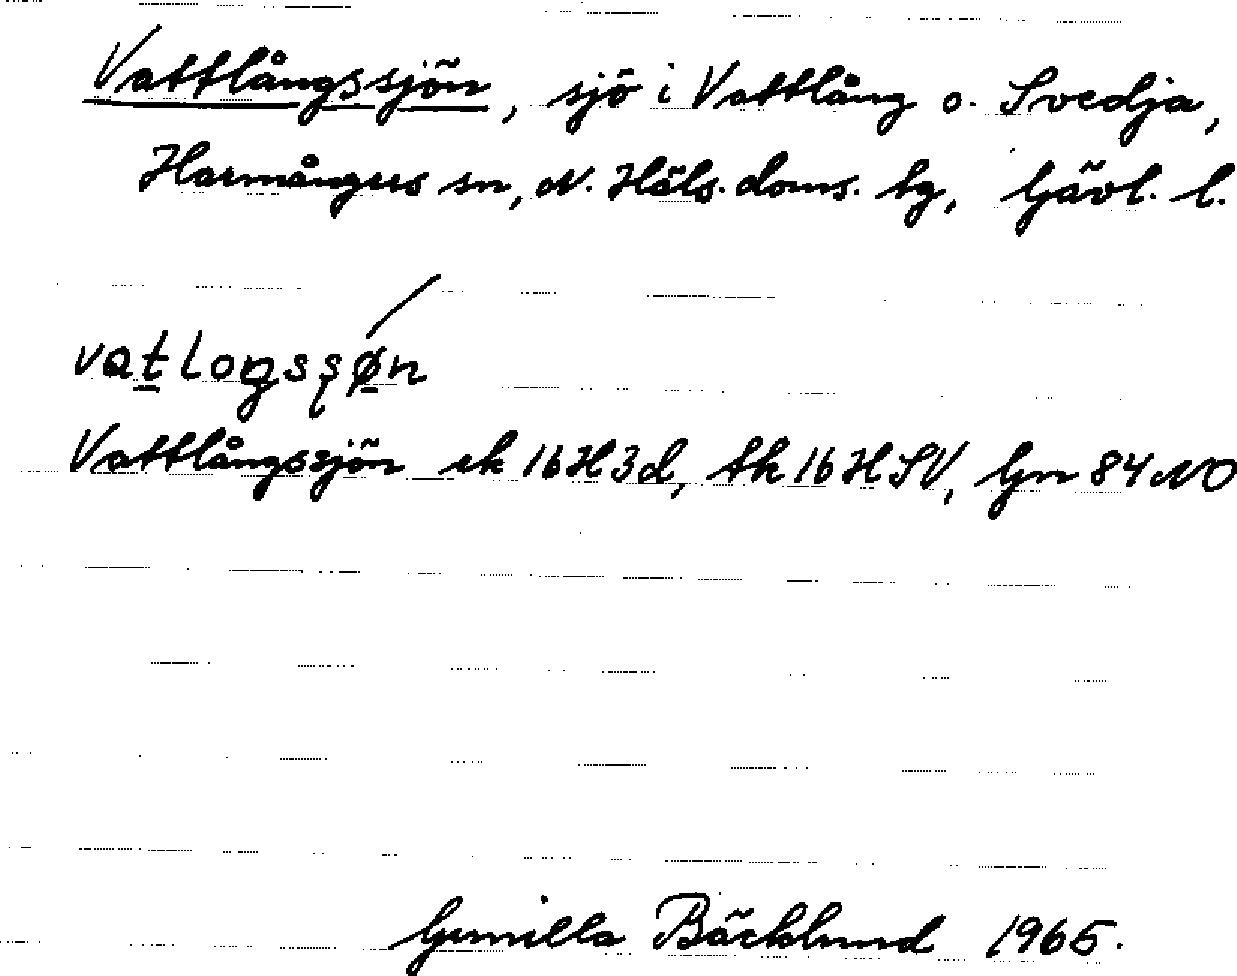 Vattlångssjön, sjö i Vattlång o. Svedja,
Harmångers sn, N. Häls. doms. tg, Gävl. l.
vatlogsşøn
Vattlångssjön ek 16H3d, tk 16HSV, Gn 84NO
Gunilla Bäcklund 1965.